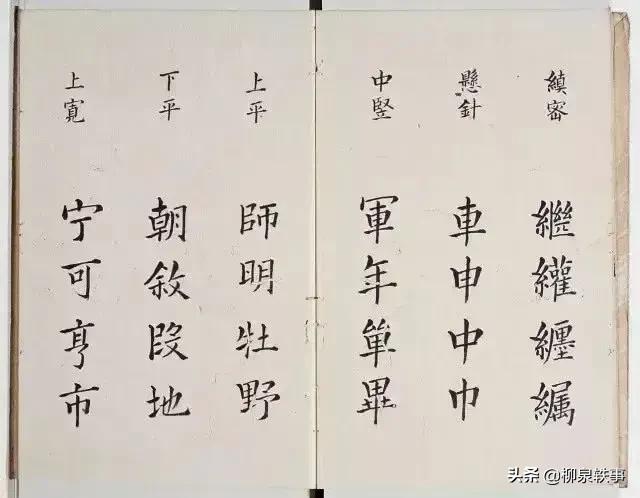 縝密
繼纏
懸針
車申中巾
中竪
軍年單畢
上平
師明牡野
下平
朝敘段地
上寬
宁可亨市
头条 @柳泉轶事